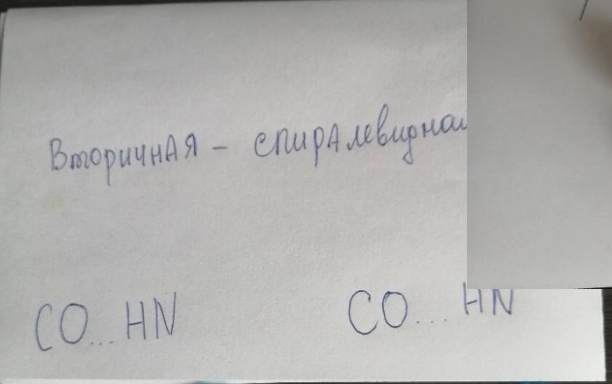 Вторичная - спиралевидная
CO...HN CO...HN